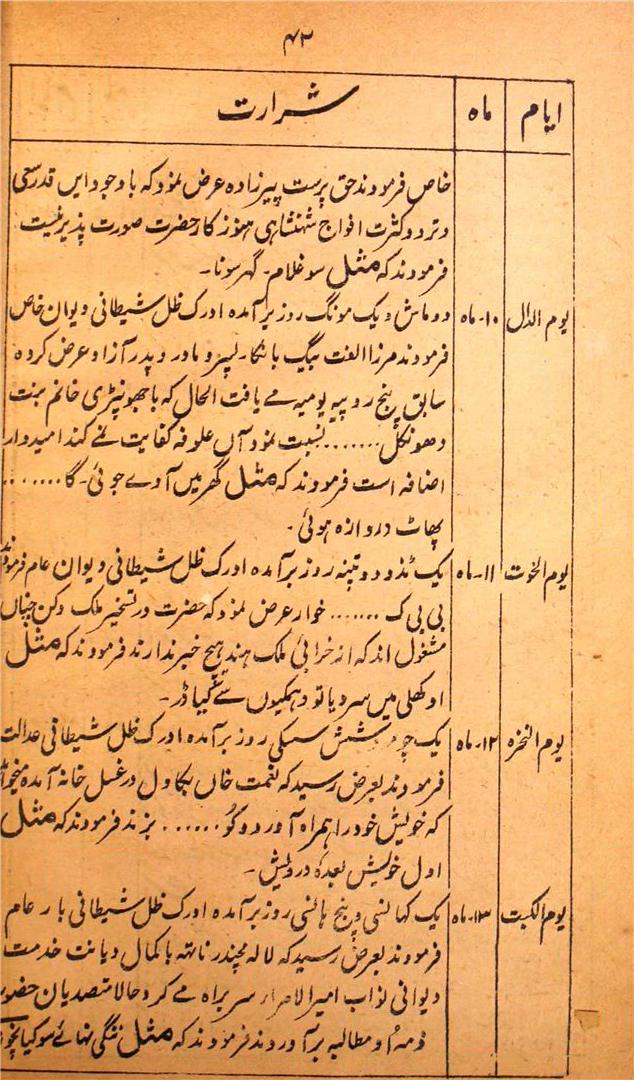 ۴۲
ایام ماہ شرارت
خاص فرمودند حق پرست پیرزادہ عرض نمود کہ باوجود ایں قدر سعی
و تردد کثرت افواج شہنشاہی ہنوز کار حضرت صورت پذیر نیست
فرمودند کہ مثل سو غلام۔ گھر سونا۔
یوم الدال ۱۰۔ماہ دو ماش و یک مونگ روز برآمدہ ادرک ظل شیطانی دیوان خاص
فرمودند مرزا الفت بیگ بانکا۔ پسر و مادر و پدر آزاد عرض کردہ
سابق پنج روپیہ یومیہ مے یافت الحال کہ با جھونپڑی خانم بنت
دھونکل ....... نسبت نمود آں علوفہ کفایت نمے کند امیدوار
اضافہ است فرمودند کہ مثل گھر میں آوے جوئی۔ گا.......
پھاٹ دروازہ ہوئی۔
یوم الخوت ۱۱۔ماہ یک ٹڈو دو تپنہ روز برآمدہ ادرک ظل شیطانی دیوان عام فرمودند
بی بی ک ....... خوار عرض نمود کہ حضرت در تسخیر ملک دکن چناں
مشغول اند کہ از خرابی ملک ہند ہیچ خبر ندارند فرمودند کہ مثل
اوکھلی میں سر دیا تو دہمکیوں سے کیا ڈر۔
یوم النخزہ ۱۲۔ماہ یک شش سسکی روز برآمدہ ادرک ظل شیطانی عدالت
فرمودند بعرض رسید کہ نعمت خاں بکاول در غسل خانہ آمدہ میخواہد
کہ خویش خود را ہمراہ آورد و گو ...... بزند فرمودند کہ مثل
اول خویش بعدہٗ درویش۔
یوم الکبت ۱۳۔ماہ یک کہانسی و پنج ہانسی روز برآمدہ ادرک ظل شیطانی بار عام
فرمودند بعرض رسید کہ لالہ مچندر ناتہہ باکمال دیانت خدمت
دیوانی نواب امیرالامرا سربراہ مے کرد حالا متصدیان حضور
ذمہ او مطالبہ برآوردند فرمودند کہ مثل ننگی نہائے سو کیا نچوڑے